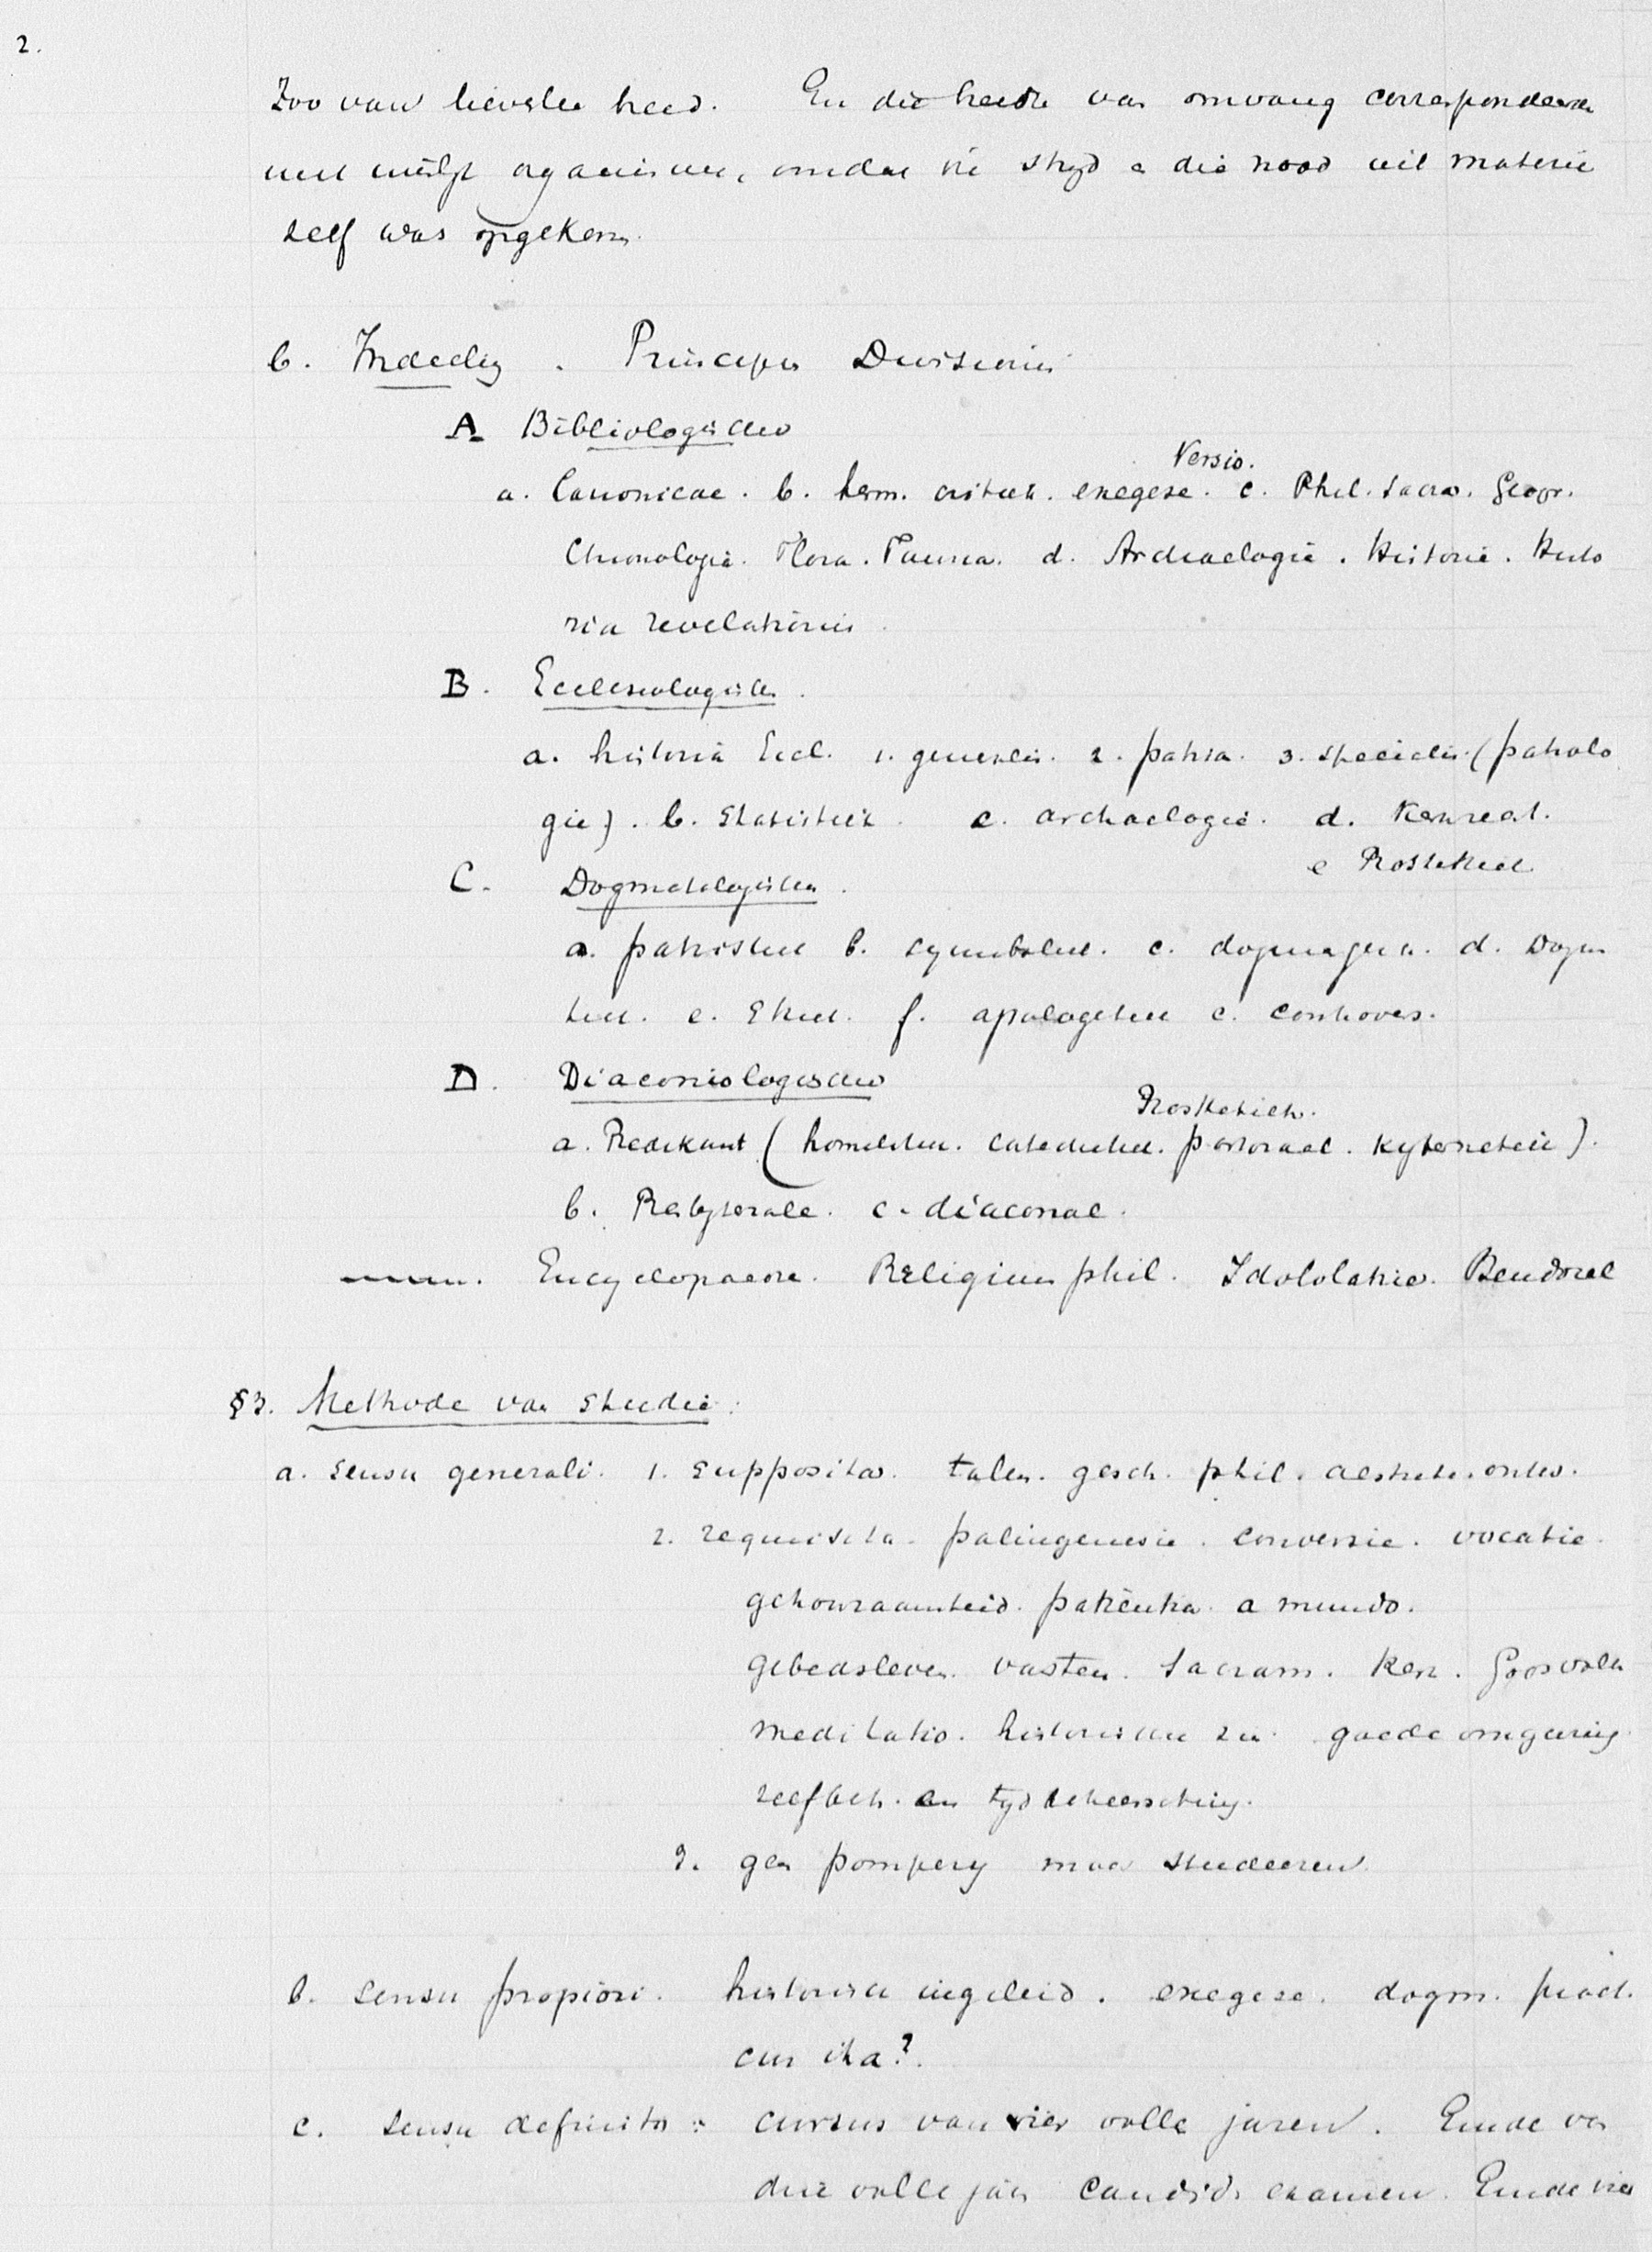 2.
Zoo van lieverlee heed. En die heede van omvang correspondeerde
met organisme, omdat die stryd & die nood uit materie
zelf was opgekom.
b. Indeeling . Principes Divisionis
A Bibliologische
Versio.
a. Canonicae. b. herm. critiek. exegese. c. Phil. Sacra. Geogr.
Chronologie. Flora. Fauna. d. Archaelogie. Historie. Histo
ria revelationis.
B. Ecclesiologische.
a. historia Eccl. 1. generalis. 2. patria. 3. specialis. (patrolo
gie). b. Statistiek. c. archaelogie. d. Kerkrecht.
C. Dogmatologische.
a. patristiek b. symboliek. c. dogmagesch. d. Dogm
tiek. e. Ethiek. f. apologetiek c. controvers.
D. Diaconiologische
a. Predikant (homiletiek. catechetiek. pastoraal. Kybernetiek).
b. Presbyterale. c. diaconae.
Encyclopaedie. Religieus phil. Idololatrie.
§3. Methode van Studie:
a. sensu generali. 1. supposita. talen. gesch. phil. aesthet.
2. requisita. palingenesie. conversie. vocatie.
gehoorzaamheid. patientia. a mundo.
gebedsleven. vasten. Sacram. Kerk.
meditatio. historische zin. goede omgeving.
zelfbeh. en tydbeheersching.
3. geen pompery maar studeeren.
b. sensu propiori. historisch ingeleid. exegese. dogm. pract.
cur ita?
c. sensu definito: cursus van vier volle jaren. Einde van
drie volle jaren Candid. examen. Einde vier